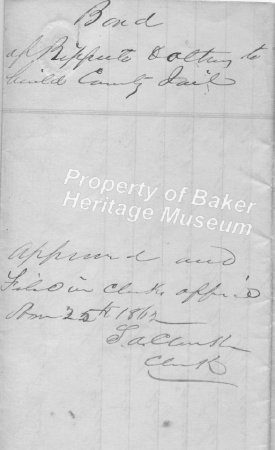 Bond
of Rippeto & Colton to
build County Jail
Property of Baker
Heritage Museum
Approved and
Filed in clerks office
Nov 25th 1862
Clerk